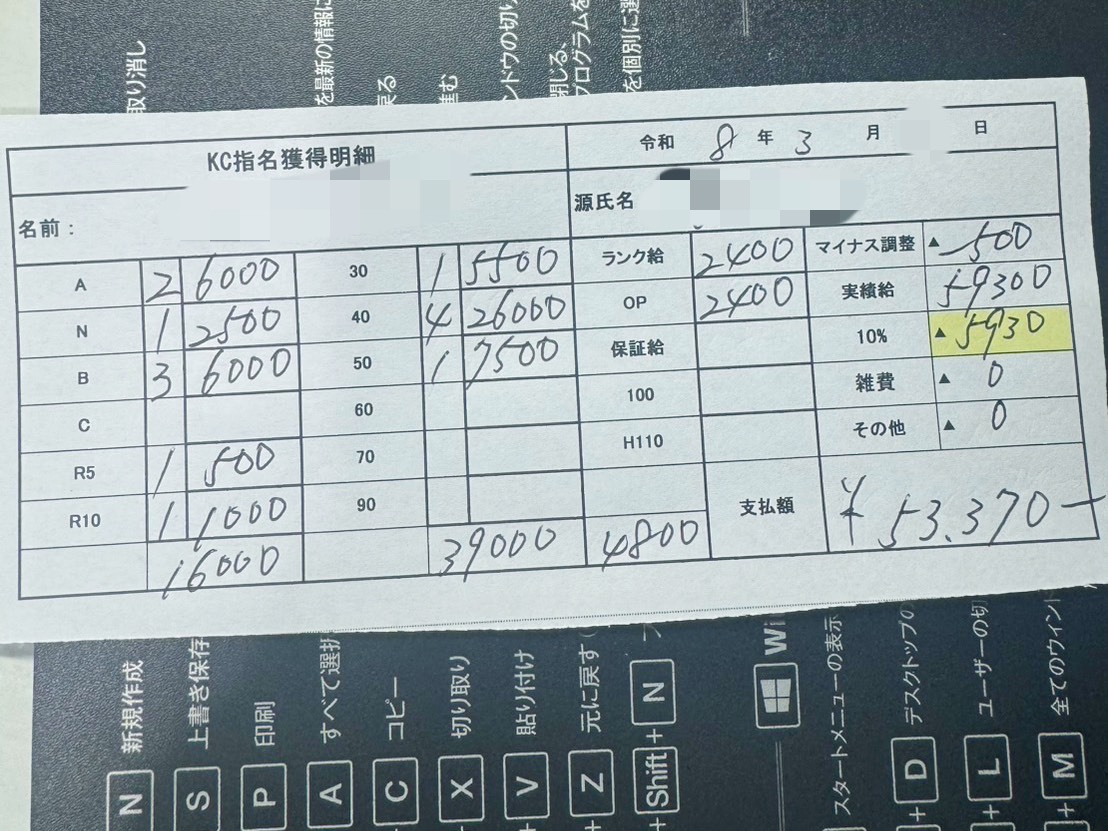 取り消し
を最新の情報に
戻る
進む
ンドウの切り
閉じる、
プログラムを
を個別に選
KC指名獲得明細
令和 8 年 3 月 日
名前：
源氏名
A 2 6000 30 1 5500 ランク給 2400 マイナス調整 ▲ 500
N 1 2500 40 4 26000 OP 2400 実績給 59300
B 3 6000 50 1 7500 保証給 10% ▲ 5930
C 60 100 雑費 ▲ 0
R5 1 500 70 H110 その他 ▲ 0
R10 1 1000 90 支払額 ¥53.370-
16000 39000 4800
N 新規作成
S 上書き保存
P 印刷
A すべて選択
C コピー
X 切り取り
V 貼り付け
Z 元に戻す
Shift + N
Wi
スタートメニューの表示
+ D デスクトップの
+ L ユーザーの切
+ M 全てのウィンド